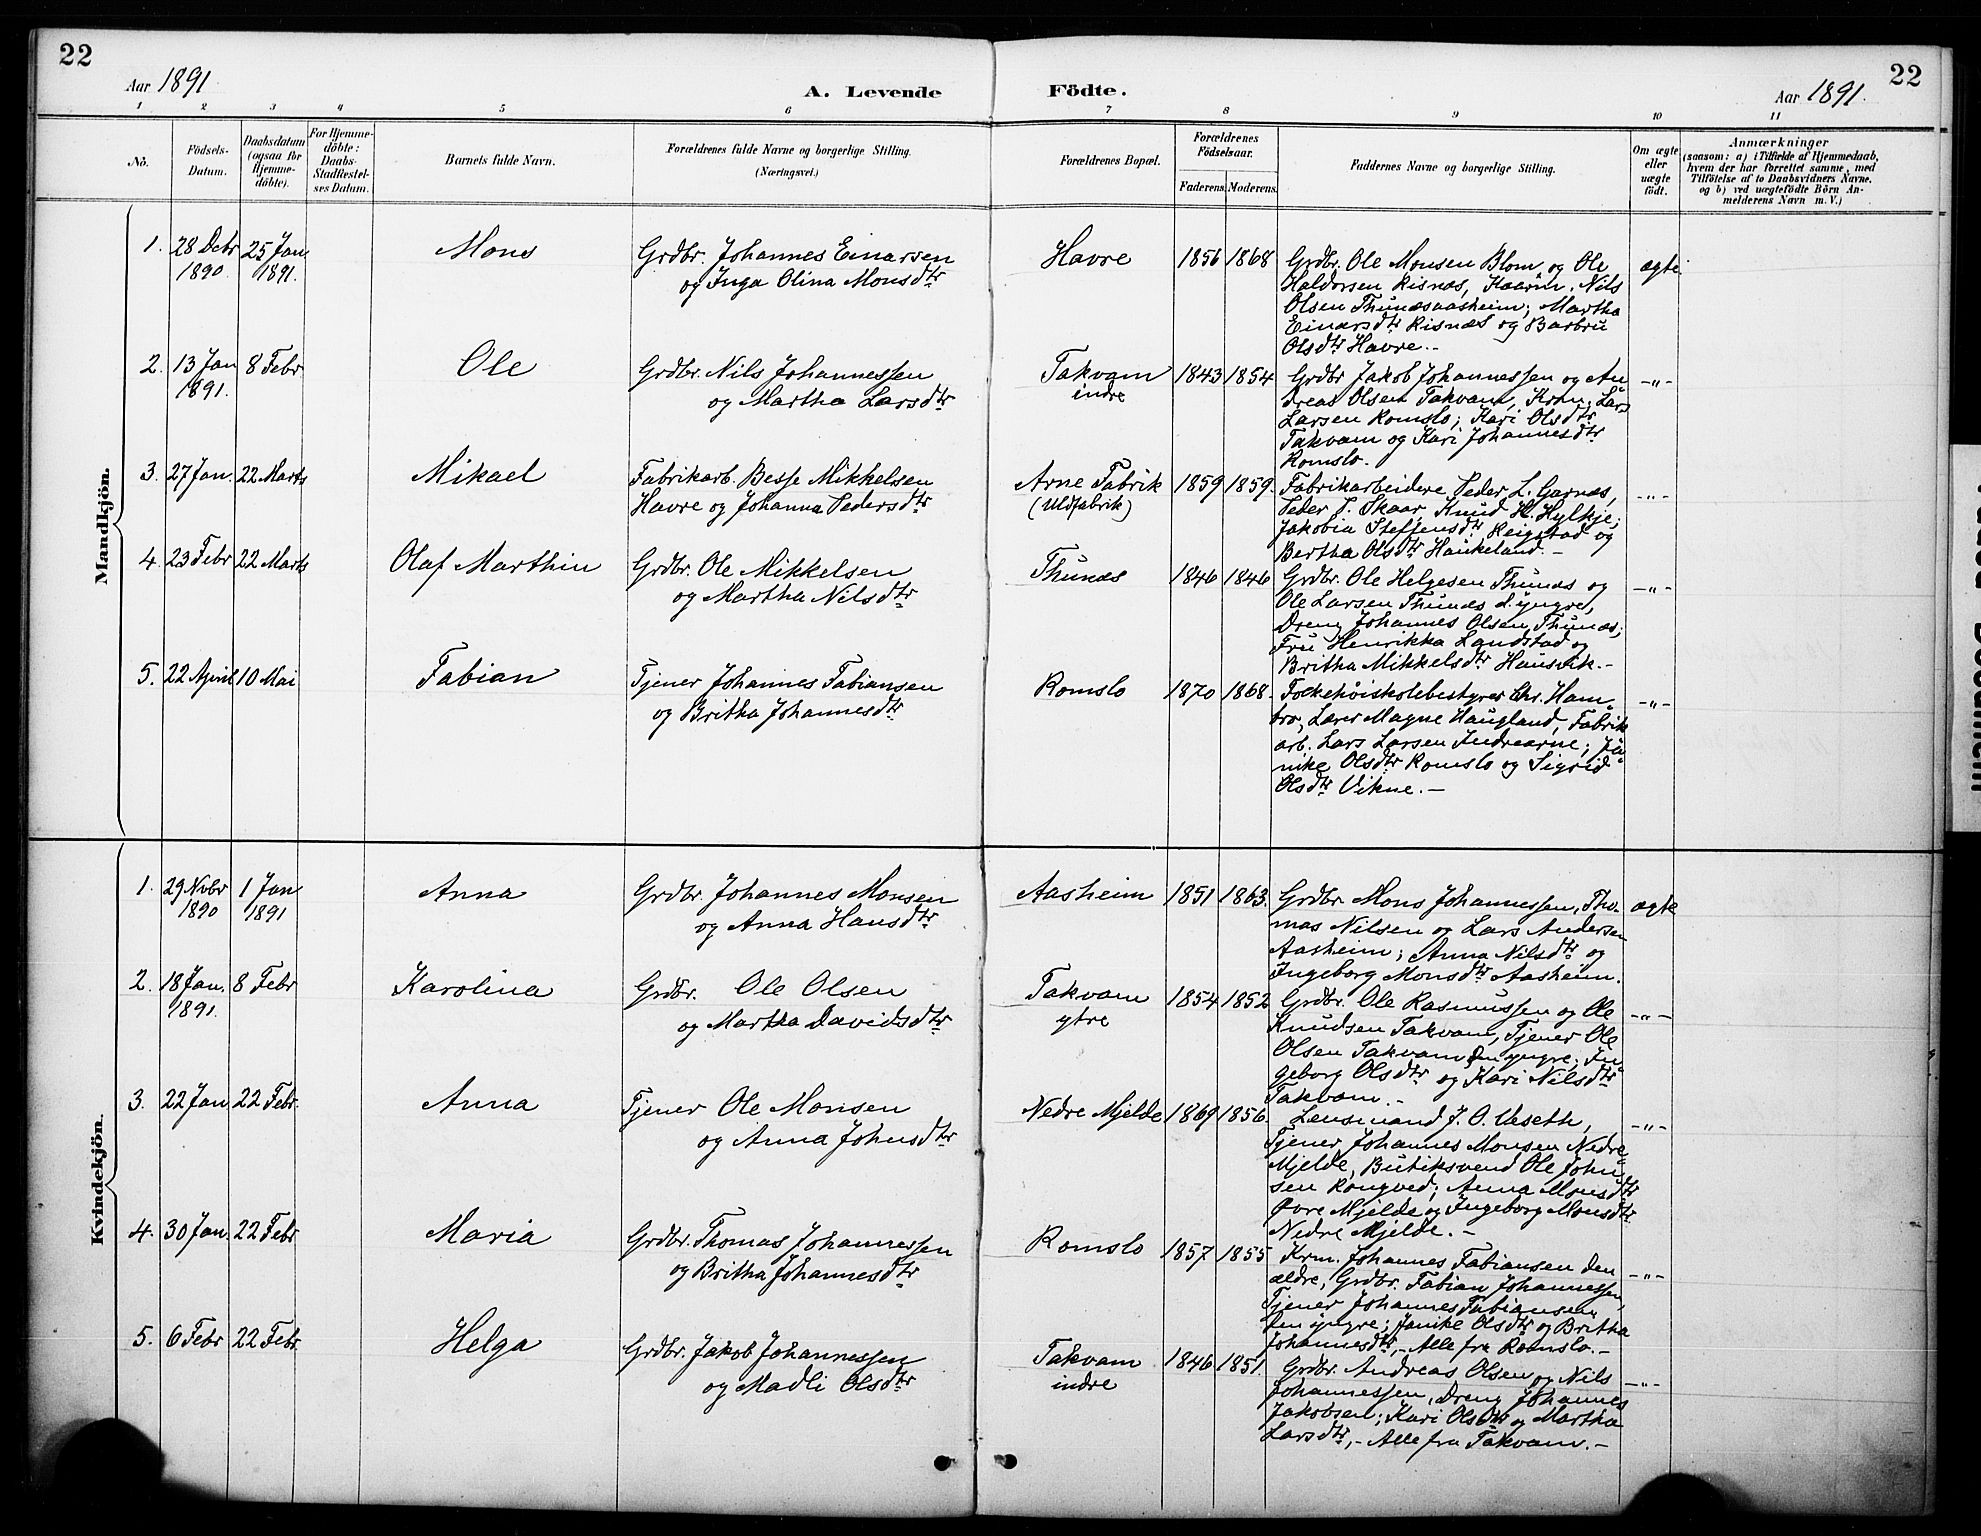 22
Aar 1891
A. Levende Födte.
Aar 1891.
22
1 2 3 4 5 6 7 8 9 10 11
No.
Födsels-
Datum.
Daabsdatum
(ogsaa for
Hjemme-
döbte).
For Hjemme-
döbte:
Daabs-
Stadfæstel-
ses Datum.
Barnets fulde Navn.
Forældrenes fulde Navne og borgerlige Stilling.
(Næringsvei.)
Forældrenes Bopæl.
Forældrenes
Födselsaar.
Faderens. Moderens.
Faddernes Navne og borgerlige Stilling.
Om ægte
eller
uægte
födt.
Anmærkninger
(saasom: a) i Tilfælde af Hjemmedaab,
hvem der har forrettet samme, med
Tilföielse af to Daabsvidners Navne,
og b) ved uægtefödte Börn An-
melderens Navn m. V.)
Mandkjön.
1. 28 Debr 1890. 25 Jan 1891. Mons
Grdbr. Johannes Einarsen
og Inga Olina Monsdtr
Havre 1856 1868
Grdbr. Ole Monsen Blom og Ole
Haldorsen Risnæs, Kaarm. Nils
Olsen Thunæsaasheim; Martha
Einarsdtr Risnæs og Barbru
Olsdtr Havre.-
ægte
2. 13 Jan 1891. 8 Febr Ole
Grdbr. Nils Johannessen
og Martha Larsdtr
Takvam
indre
1843 1854
Grdbr Jakob Johannessen og An
dreas Olsen Takvam, Krm. Lars
Larsen Romslo; Kari Olsdtr
Takvam og Kari Johannesdtr
Romslo.
-"-
3. 27 Jan. 22 Marts Mikael
Fabrikarb. Besse Mikkelsen
Havre og Johanna Pedersdtr
Arne Fabrik
(Uldfabrik)
1859 1859.
Fabrikarbeidere Peder L. Garnæs,
Peder P. Skaar Knud H. Hylkje;
Jakobia Steffensdtr Reigstad og
Bertha Olsdtr Haukeland.-
-"-
4. 23 Febr 22 Marts Olaf Marthin
Grdbr. Ole Mikkelsen
og Martha Nilsdtr
Thunæs 1846 1846
Grdbr. Ole Helgesen Thunæs og
Ole Larsen Thunæs d. yngre,
Dreng Johannes Olsen Thunæs;
Fru Henrikka Landstad og
Britha Mikkelsdtr Hausvik.-
-"-
5. 22 April 10 Mai Fabian
Tjener Johannes Fabiansen
og Britha Johannesdtr
Romslo 1870 1868.
Folkehöiskolebestyrer Chr. Ham„
bro, Lærer Magne Haugland, Fabrik
arb. Lars Larsen Indrearne; Jan„
nike Olsdtr Romslo og Sigrid
Olsdtr Vikne.-
-"-
Kvindekjön.
1. 29 Nvbr 1890 1 Jan 1891 Anna
Grdbr. Johannes Monsen
og Anna Hansdtr
Aasheim 1851 1863.
Grdbr Mons Johannessen, Tho-
mas Nilsen og Lars Andersen
Aasheim; Anna Nilsdtr og
Ingeborg Monsdtr Aasheim.
ægte
2. 18 Jan. 1891. 8 Febr Karolina
Grdbr. Ole Olsen
og Martha Davidsdtr
Takvam
ytre
1854 1852
Grdbr. Ole Rasmussen og Ole
Knudsen Takvam, Tjener Ole
Olsen Takvam den yngre; In„
geborg Olsdtr og Kari Nilsdtr
Takvam.-
-"-
3. 22 Jan 22 Febr. Anna
Tjener Ole Monsen
og Anna Johnsdtr
Nedre Mjelde 1869 1856.
Lensmand J. O. Veseth,
Tjener Johannes Monsen Nedre
Mjelde, Butiksvend Ole John„
sen Rongved; Anna Monsdtr
Övre Mjelde og Ingeborg Monsdtr
Nedre Mjelde.-
-"-
4. 30 Jan. 22 Febr Maria
Grdbr. Thomas Johannessen
og Britha Johannesdtr
Romslo 1857 1855
Krm. Johannes Fabiansen den
ældre, Grdbr. Fabian Johannessen,
Tjener Johannes Fabiansen
den yngre; Janike Olsdtr og Britha
Johannesdtr,- Alle fra Romslo.-
-"-
5. 6 Febr 22 Febr. Helga
Grdbr. Jakob Johannessen
og Madli Olsdtr
Takvam
indre
1846 1851.
Grdbr. Andreas Olsen og Nils
Johannessen, Dreng Johannes
Jakobsen; Kari Olsdtr og Martha
Larsdtr,- Alle fra Takvam.-
-"-